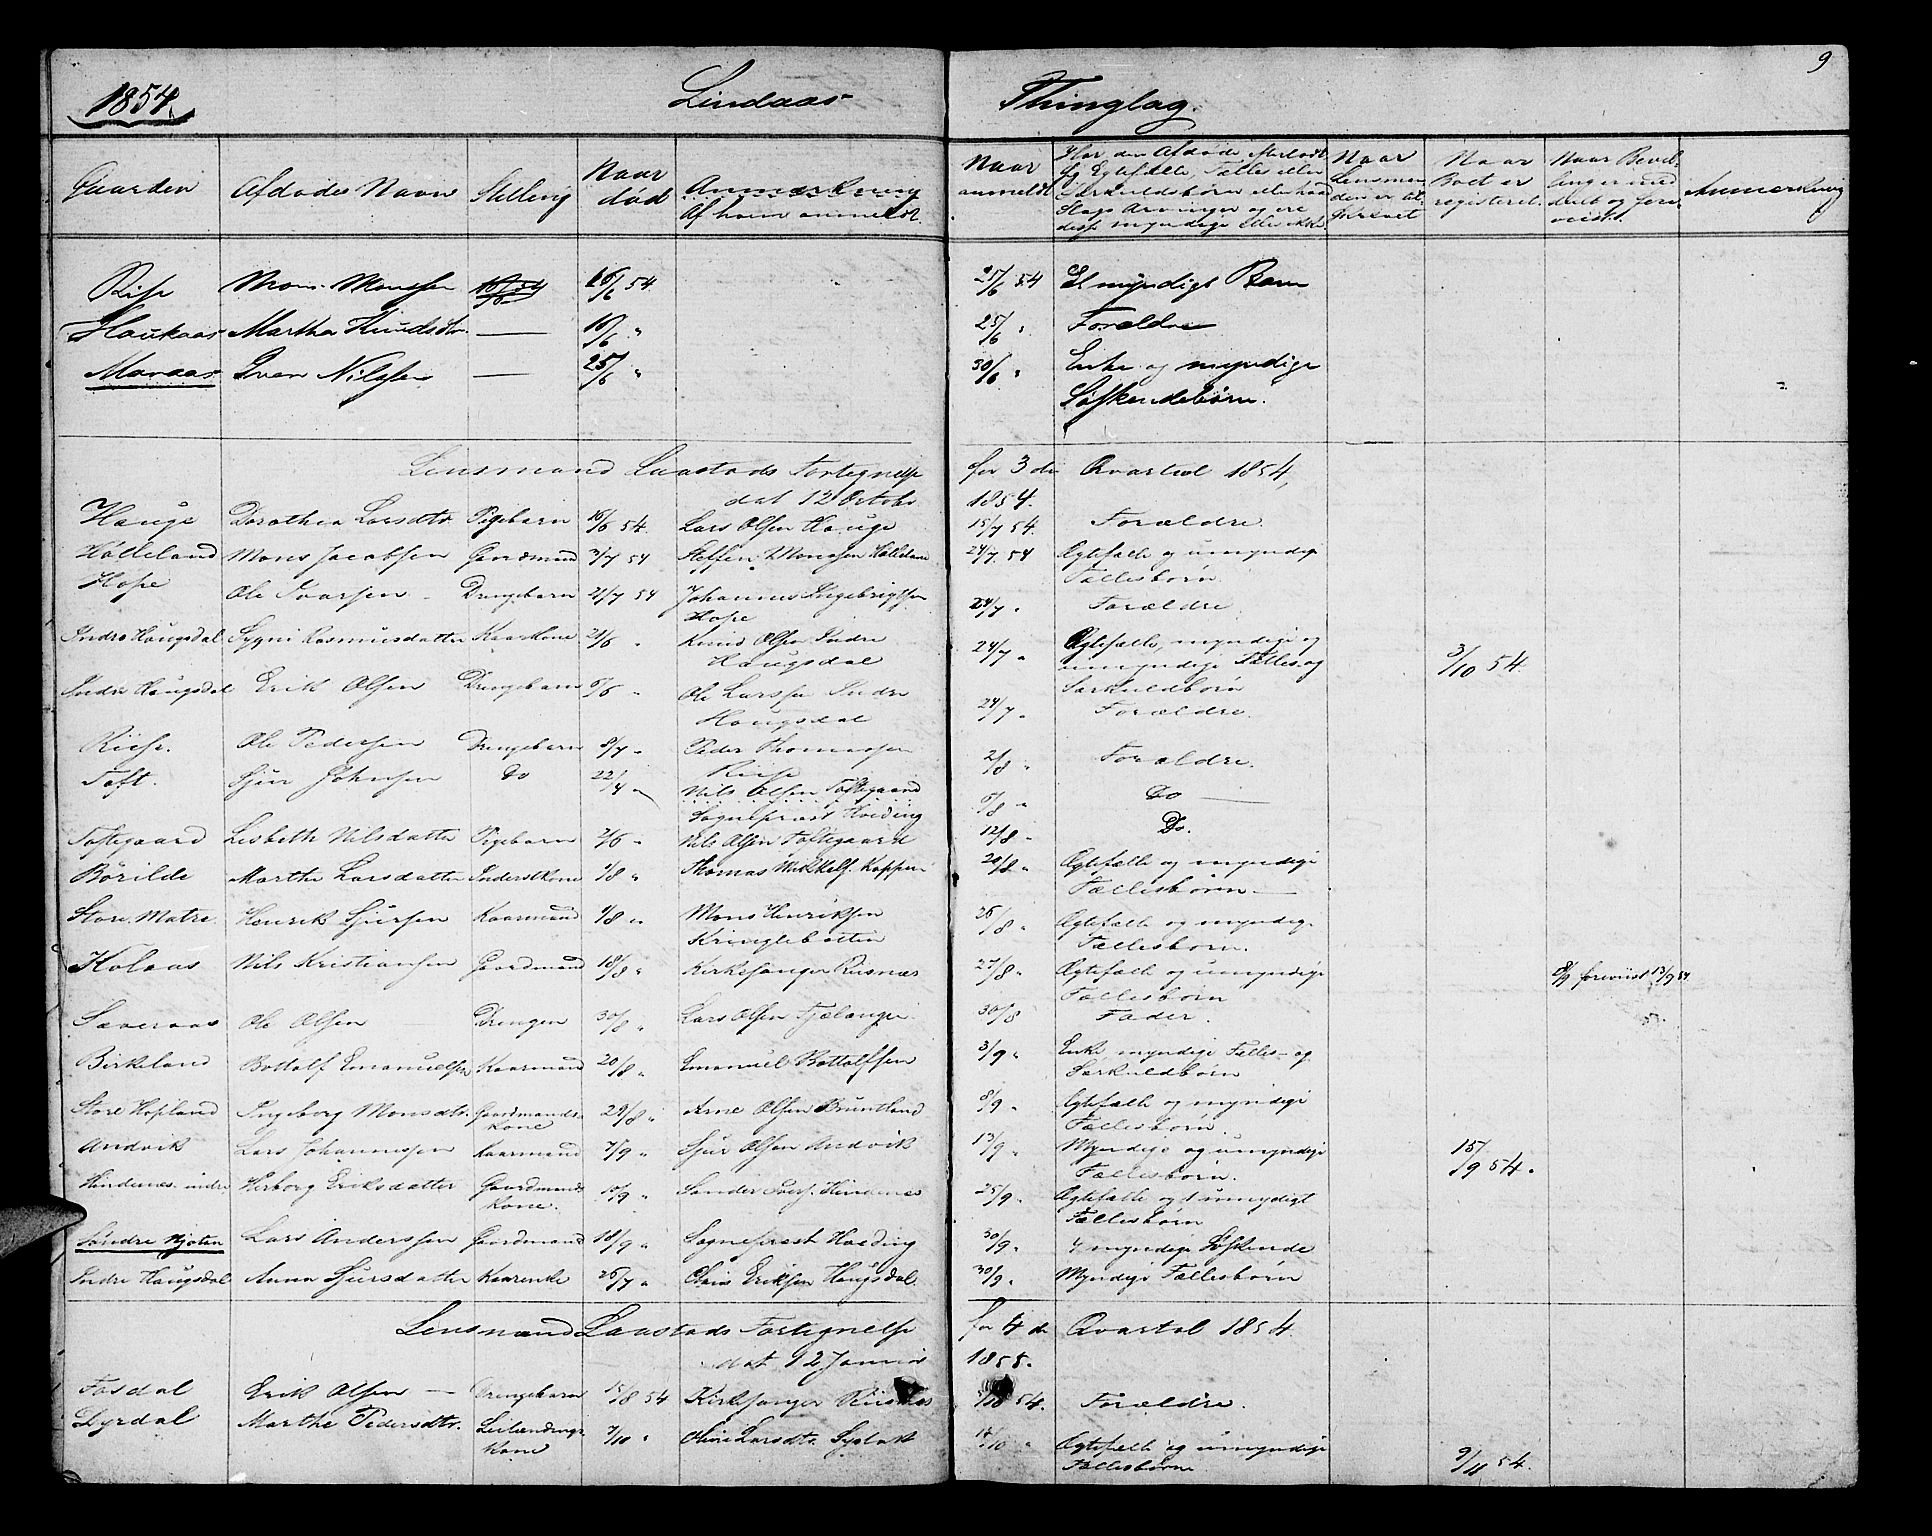 9
1854. Lindaas Thinglag.
Gaarden Afdødes Navn Stilling Naar død Anmærkning Af hvem anmeldt. Naar anmeldt Har den Afdøde efterladt sig Egtefælle, Fælles eller Særkuldsbörn eller hvad Slags Arvinger og ere disse myndige eller ikke Naar Lensmanden er tilskrevet Naar Boet er registeret. Naar Bevilling er meddelt og foreviist. Anmærkning
Riise Mons Monssen 16/6 54. 25/6 54 Et myndigt Barn
Haukaas Martha Knudsdtr — 10/6 " 25/6 " Forældre
Maraas Iver Nilssen — 25/6 " 30/6 " Enke og myndige
Söskendebörn.
Lensmand Laastads Fortegnelse for 3die Qvartal 1854,
dat 12 Octobr 1854.
Hauge Dorothea Larsdtr Pigebarn 16/6 54. Lars Olsen Hauge 15/7 54. Forældre.
Halleland Mons Jacobsen Gaardmand 3/7 54 Steffen Monssen Halleland 24/7 54 Ægtefælle og umyndige
Fællesbörn.
Hope Ole Ivarsen - Drengebarn 21/7 54 Johannes Ingebrigtsen 24/7 " Forældre.
Hope
Indre Haugsdal Sygni Rasmusdatter Kaarkone 21/6 " Knud Olsen Indre 24/7 " Ægtefælle, myndige og
Haugsdal umyndige Fælles og 3/10 54.
Særkuldbörn
Indre Haugsdal Erik Olsen Drengebarn 5/6 " Ole Larssen Indre 24/7 " Forældre.
Haugsdal
Riise. Ole Pedersen Drengebarn 8/7 " Peder Thomassen 2/8 " Forældre.
Riise
Toft. Sjur Johnsen Do 22/4 " Nils Olsen Toftegaard 5/8 " Do —
Sogneprest Hviding
Toftegaard Lisbeth Nilsdatter Pigebarn 2/6 " Nils Olsen Toftegaard 12/8 " Do.
Börilde Marthe Larsdatter Inderstkone 1/8 " Thomas Mikkels. Koppen 20/8 " Ægtefælle og myndige
Fællesbörn. —
Store Matre. Henrik Sjursen Kaarmand 4/8 " Mons Henriksen 26/8 " Ægtefælle og myndige
Kringlebotten Fællesbörn.
Kolaas Nils Kristiansen Gaardmand 18/8 " Kirkesanger Riisnæs 27/8 " Ægtefælle og umyndige 8/9 foreviist 13/9 54
Fællesbörn
Sæveraas Ole Olsen Drengen 30/8 " Lars Olsen Fjelanger 30/8 Fader.
Birkeland Bottolf Emanuelsen Kaarmand 20/8 " Emanuel Bottolfsen 3/9 " Enke, myndige Fælles- og
Særkuldbörn
Store Hopland Ingeborg Monsdtr. Gaardmands- 29/8 " Arne Olsen Bruntland 8/9 " Ægtefælle og myndige
kone Fællesbörn.
Andvik Lars Johannessen Kaarmand 7/9 " Sjur Olsen Andvik 13/9 " Myndige og umyndige 15/9 54.
Fællesbörn.
Hindenæs indre Herborg Eriksdatter Gaardmands 10/9 " Sander Hindenæs 25/9 " Ægtefælle og 1 umyndigt
kone. Fællesbörn
Söndre Kjoten Lars Anderssen Gaardmand 18/9 " Sogneprest Hviding 30/9 " 4 myndige Söskende
Indre Haugsdal Anna Sjursdatter Kaarenke 26/7 " Eriksen Haugsdal 30/9 " Myndige Fællesbörn
Lensmand Laastads Fortegnelse for 4de Qvartal 1854.
dat 12 Januar 1855.
Fosdal Erik Olsen — Drengebarn 15/8 54 Kirkesanger Riisnæs 5/10 54. Forældre.
Dyrdal Marthe Pedersdtr. Leilændings- 7/10 " Oline Larsdtr. 14/10 " Ægtefælle og umyndige
Kone Fællesbörn 9/11 54.